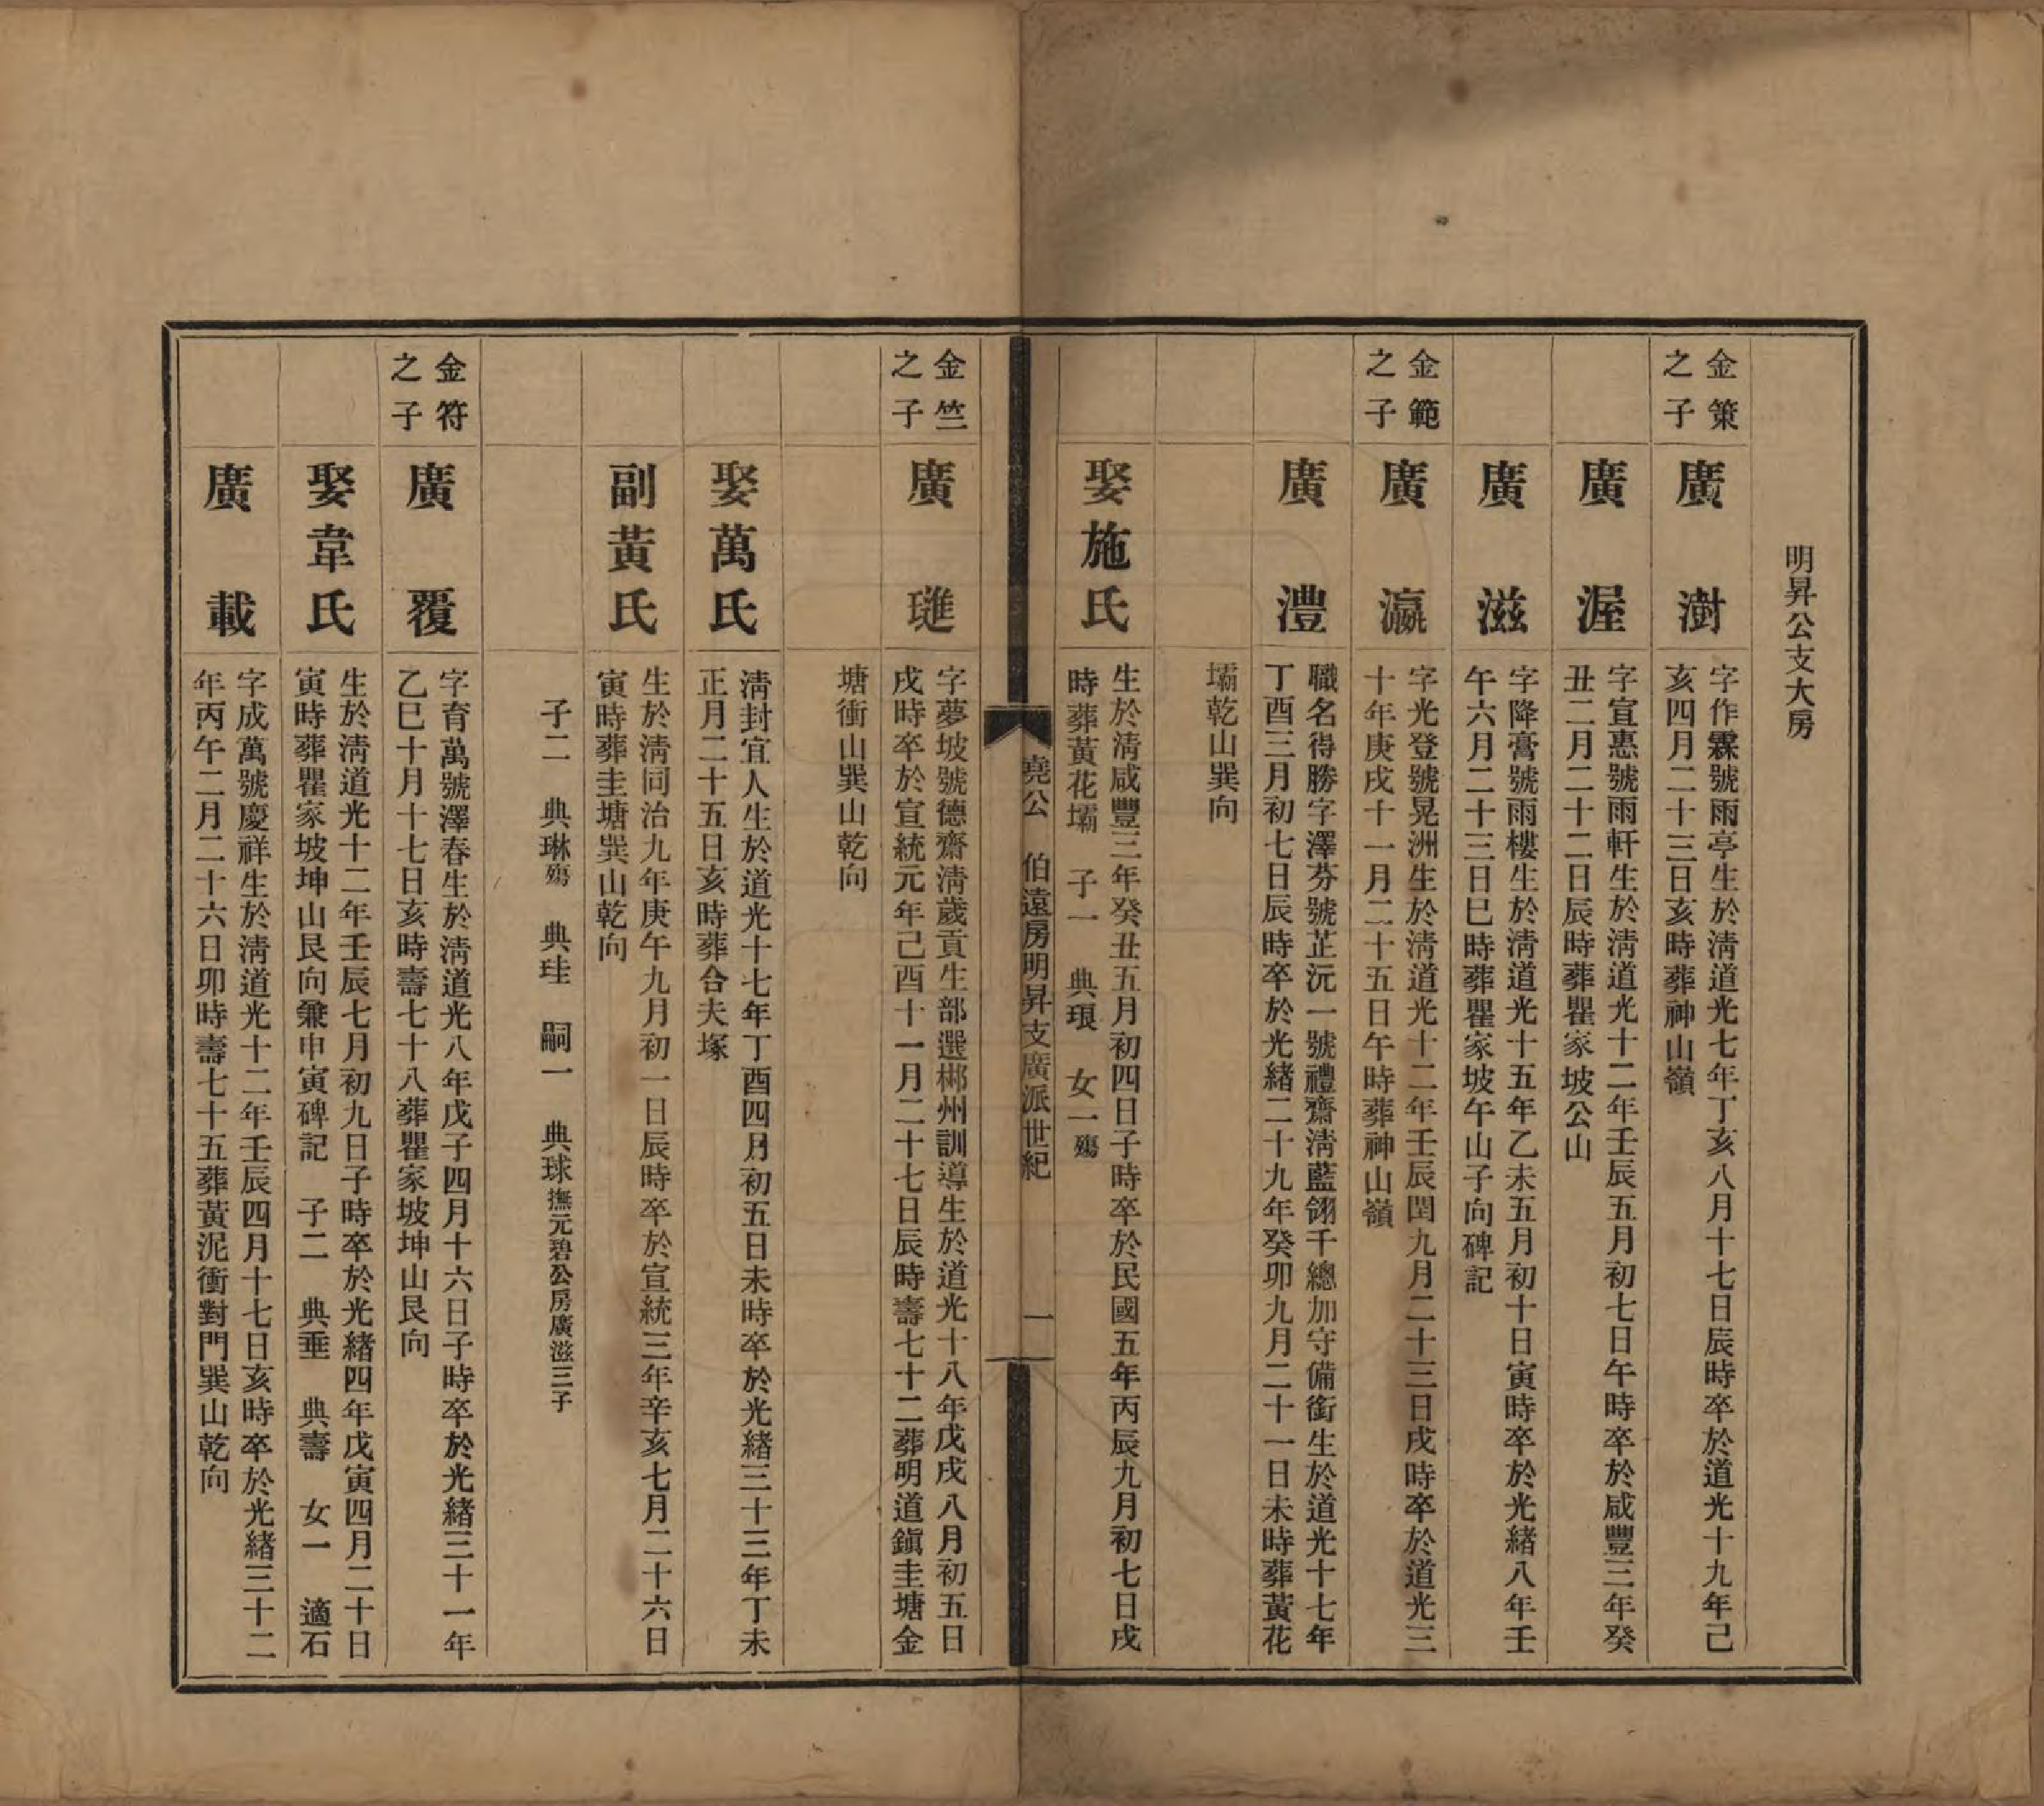 明昇公支大房
金策
之子
廣澍
字作霖號雨亭生於淸道光七年丁亥八月十七日辰時卒於道光十九年己
亥四月二十三日亥時葬神山嶺
廣渥
字宣惠號雨軒生於淸道光十二年壬辰五月初七日午時卒於咸豐三年癸
丑二月二十二日辰時葬瞿家坡公山
廣滋
字降膏號雨樓生於淸道光十五年乙未五月初十日寅時卒於光緖八年壬
午六月二十三日巳時葬瞿家坡午山子向碑記
金範
之子
廣瀛
字光登號晃洲生於淸道光十二年壬辰閏九月二十三日戌時卒於道光三
十年庚戌十一月二十五日午時葬神山嶺
廣澧
職名得勝字澤芬號芷沅一號禮齋淸藍翎千總加守備銜生於道光十七年
丁酉三月初七日辰時卒於光緖二十九年癸卯九月二十一日未時葬黃花
壩乾山巽向
娶施氏
生於淸咸豐三年癸丑五月初四日子時卒於民國五年丙辰九月初七日戌
時葬黃花壩 子一 典琅 女一殤
堯公 伯遠房明昇支廣派世紀 一
金竺
之子
廣璡
字夢坡號德齋淸歲貢生部選郴州訓導生於道光十八年戊戌八月初五日
戌時卒於宣統元年己酉十一月二十七日辰時壽七十二葬明道鎭圭塘金
塘衝山巽山乾向
娶萬氏
淸封宜人生於道光十七年丁酉四月初五日未時卒於光緖三十三年丁未
正月二十五日亥時葬合夫塚
副黃氏
生於淸同治九年庚午九月初一日辰時卒於宣統三年辛亥七月二十六日
寅時葬圭塘巽山乾向
子二 典琳殤 典珪 嗣一 典球撫元碧公房廣滋三子
金符
之子
廣覆
字育萬號澤春生於淸道光八年戊子四月十六日子時卒於光緖三十一年
乙巳十月十七日亥時壽七十八葬瞿家坡坤山艮向
娶韋氏
生於淸道光十二年壬辰七月初九日子時卒於光緖四年戊寅四月二十日
寅時葬瞿家坡坤山艮向兼申寅碑記 子二 典垂 典壽 女一 適石
廣載
字成萬號慶祥生於淸道光十二年壬辰四月十七日亥時卒於光緖三十二
年丙午二月二十六日卯時壽七十五葬黃泥衝對門巽山乾向